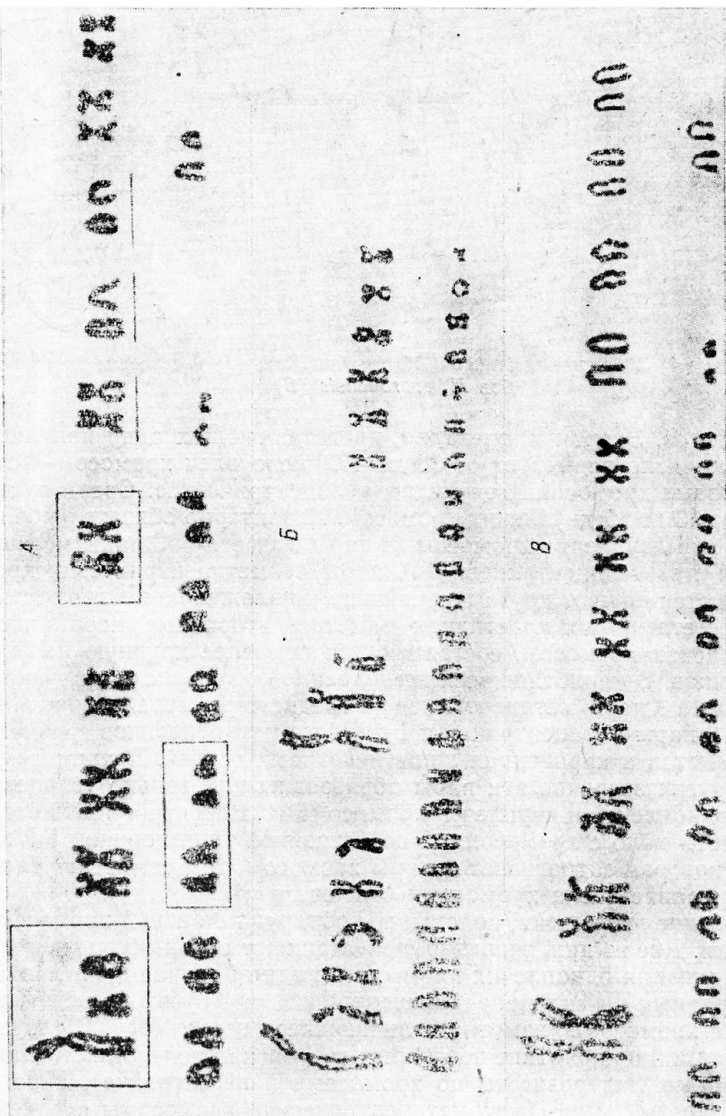 А
Б
В